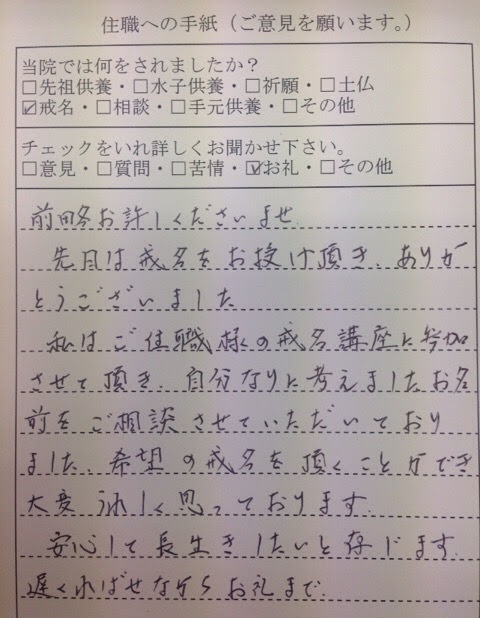 住職への手紙（ご意見を願います。）
当院では何をされましたか？
□先祖供養・□水子供養・□祈願・□土仏
☑戒名・□相談・□手元供養・□その他
チェックをいれ詳しくお聞かせ下さい。
□意見・□質問・□苦情・☑お礼・□その他
前略お許しくださいませ
先日は戒名をお授け頂き、ありが
とうございました
私はご住職様の戒名講座に参加
させて頂き、自分なりに考えましたお名
前をご相談させていただいており
ました、希望の戒名を頂くことができ
大変うれしく思っております。
安心して長生きしたいと存じます。
遅くればせながらお礼まで